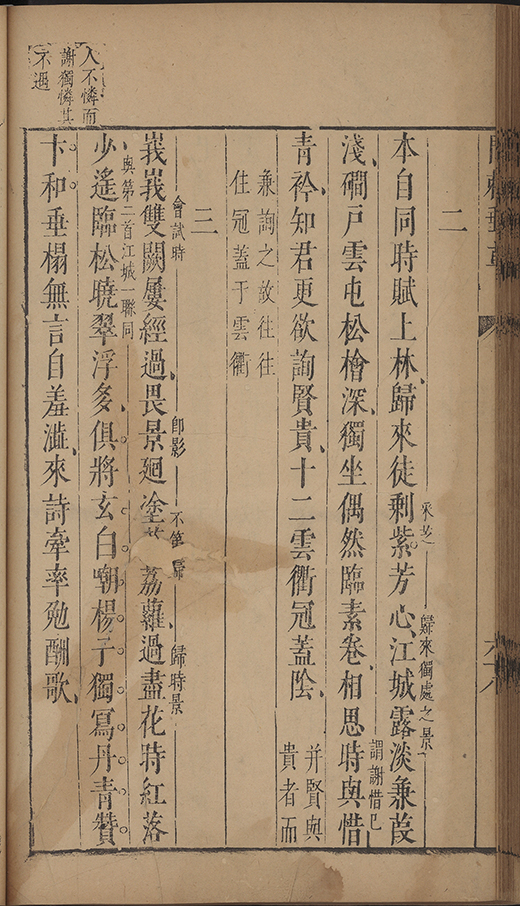 二
本自同時賦上林歸來徒剩紫芳心江城露淡兼葭
采芝
歸來獨處之景
淺磵戶雲屯松檜深獨坐偶然臨素卷相思時與惜
謂謝惜己
青衿知君更欲詢賢貴十二雲衢冠蓋陰
并賢與
貴者而
兼詢之故往往
住冠蓋于雲衢
三
會試時
峩峩雙闕屢經過畏景廻塗
荔蘿過盡花時紅落
即影
歸時景
與第二首江城一聯同
少遙臨松曉翠浮多俱將玄白嘲楊子獨寫丹青贊
卞和垂榻無言自羞澁來詩牽率勉酬歌
人不憐而
謝獨憐其
不遇
六十八